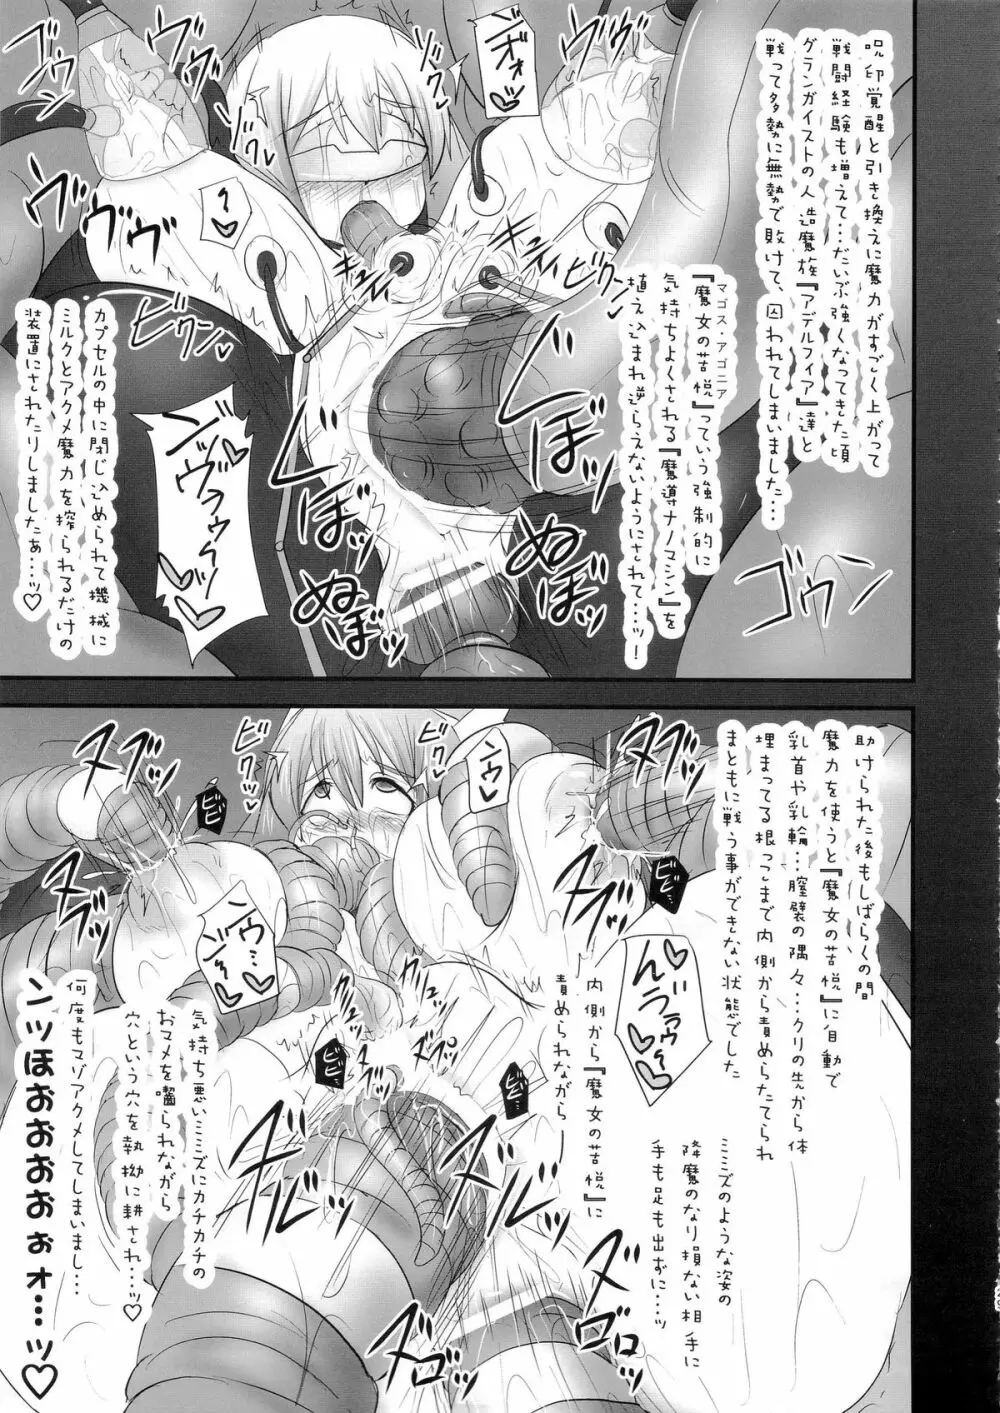 呪印覚醒と引き換えに魔力がすごく上がって
戦闘経験も増えて…だいぶ強くなってきた頃
グランガイストの人造魔族『アデルフィア』達と
戦って多勢に無勢で敗けて、囚われてしまいました…
マゴス・アゴニア
『魔女の苦悦』っていう強制的に
気持ちよくされる『魔導ナノマシン』を
植え込まれ逆らえないようにされて…ッ!
カプセルの中に閉じ込められて機械に
ミルクとアクメ魔力を搾られるだけの
装置にされたりしましたぁ…ッ♡
ンオォッ♡
ンッヴヲゥゥッ♡
ゴウン
ゴウン
ヴヴヴ
ビクッ
ビクッ
ゾクゾクッ
ビクンッ
ビクンッ
ぬぼ
ぬぼッ
ぬぼ
ぬぼッ
助けられた後もしばらくの間
魔力を使うと『魔女の苦悦』に自動で
乳首や乳輪…膣襞の隅々…クリの先から体
埋まってる根っこまで内側から責めらたてられ
まともに戦う事ができない状態でした
ミミズのような姿の
降魔のなり損ない相手に
手も足も出ずに…ッ
内側から『魔女の苦悦』に
責められながら
気持ち悪いミミズにカチカチの
おマメを嚙られながら
穴という穴を執拗に耕され…ッ♡
何度もマゾアクメしてしまいまし…
ンッほぉおおおぉォ…ッ♡
ンウッ♡
ンウ…♡
ビクッ
ビクッ
ビビ
ビビ
ビビ
ビビ
ズヌッ
ズヌッ
ヌヌッ
ズルッ
ズルッ
ズゾゾ
ズゾッ